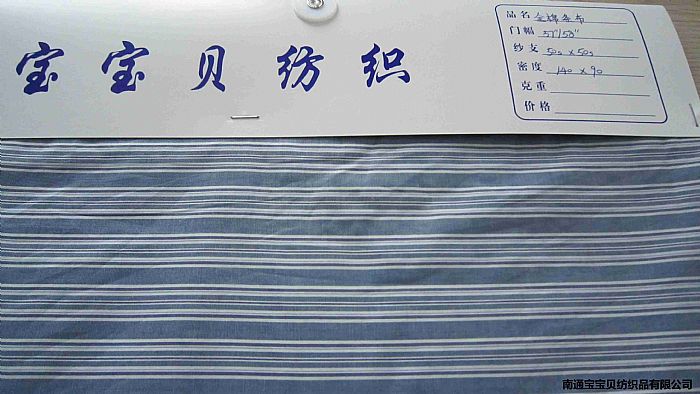 宝宝贝纺织
品名 全棉条布
门幅 57"/58"
纱支 50s x 50s
密度 140 x 90
克重
价格
南通宝宝贝纺织品有限公司